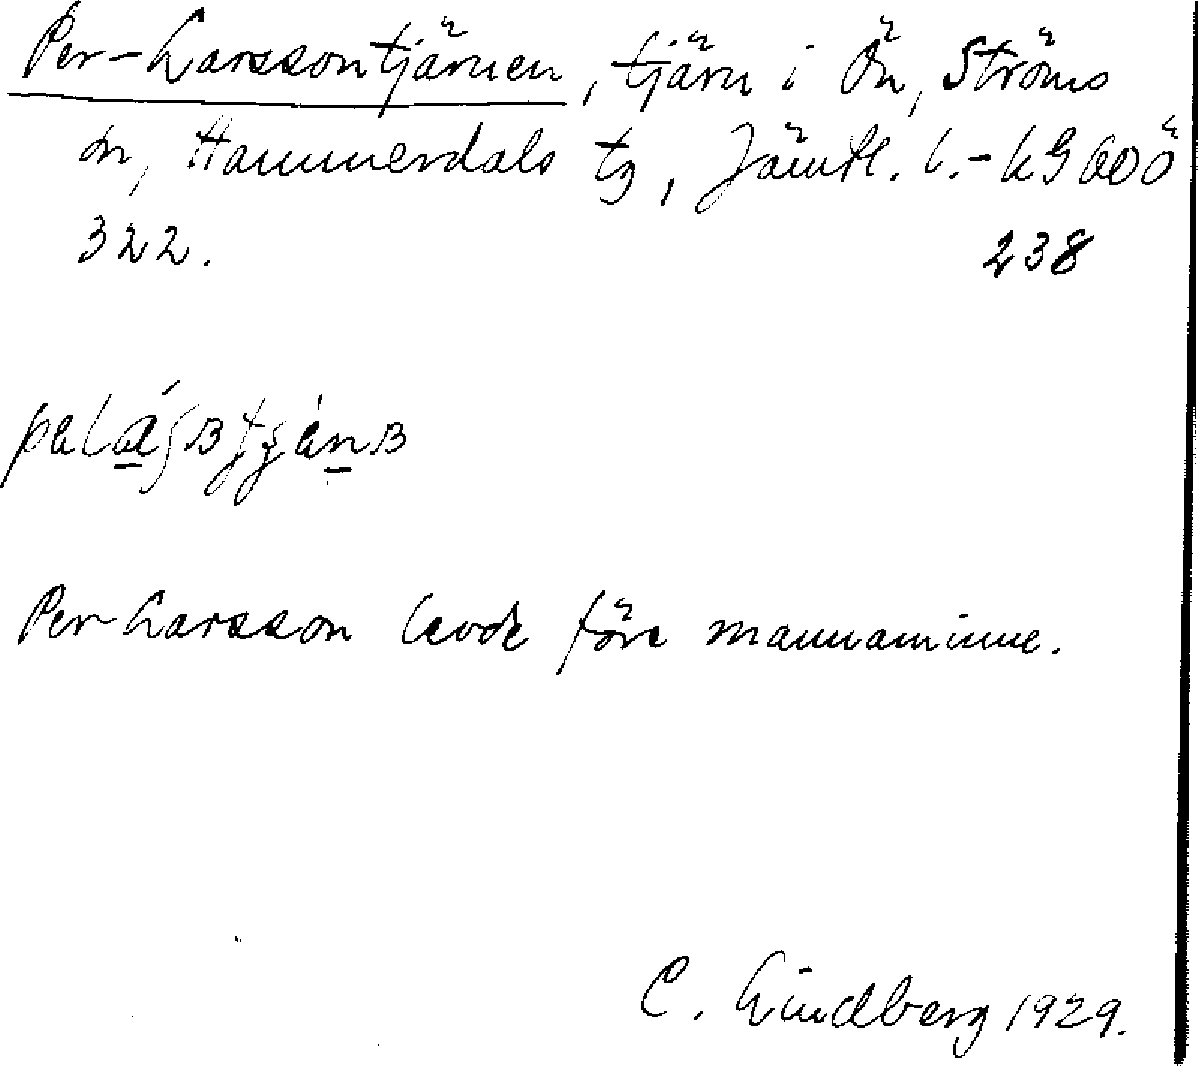 Per-Larssontjärnen, tjärn i Ön, Ströms
sn, Hammerdals tg, Jämtl. l.-
322. 238
Per Larsson levde före mannaminne.
C. Lindberg 1929.